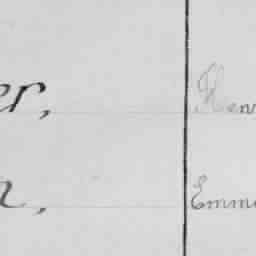 er, Hen
n, Emm